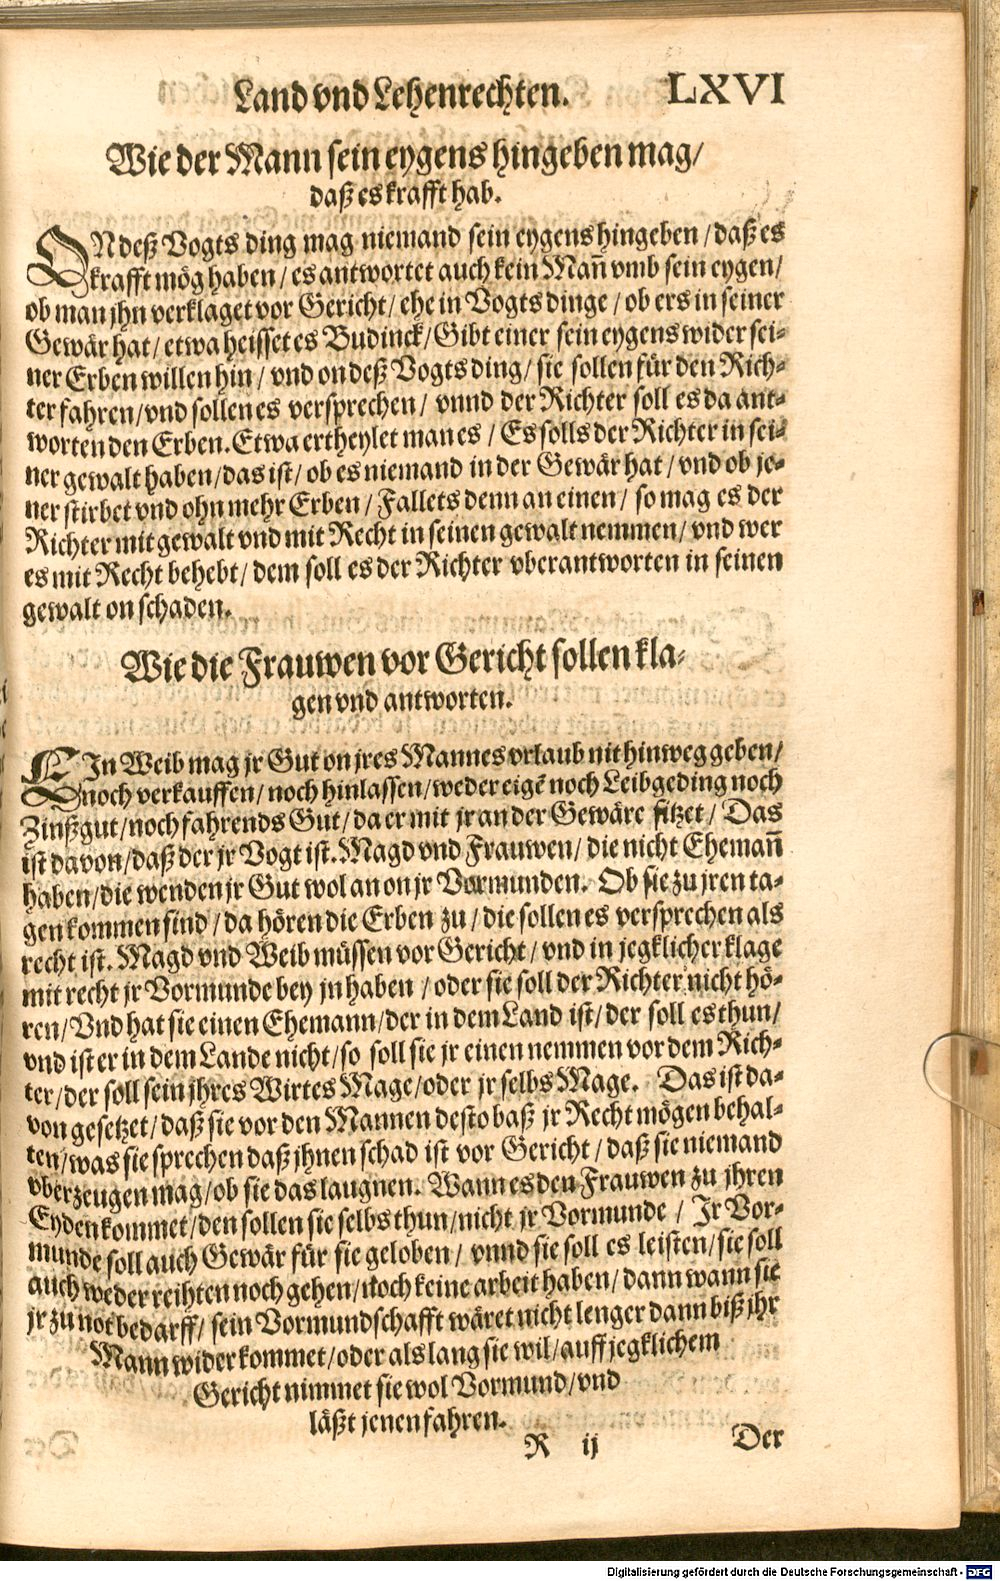 Land vnd Lehenrechten. LXVI
Wie der Mann sein eygens hingeben mag/
daß es krafft hab.
ON deß Vogts ding mag niemand sein eygens hingeben / daß es
krafft mög haben / es antwortet auch kein Mañ vmb sein eygen/
ob man jhn verklaget vor Gericht / ehe in Vogts dinge / ob ers in seiner
Gewär hat / etwa heisset es Budinck / Gibt einer sein eygens wider sei-
ner Erben willen hin / vnd on deß Vogts ding / sie sollen für den Rich-
ter fahren / vnd sollen es versprechen / vnnd der Richter soll es da ant-
worten den Erben. Etwa ertheylet man es / Es solls der Richter in sei-
ner gewalt haben / das ist / ob es niemand in der Gewär hat / vnd ob je-
ner stirbet vnd ohn mehr Erben / Fallets denn an einen / so mag es der
Richter mit gewalt vnd mit Recht in seinen gewalt nemmen / vnd wer
es mit Recht behebt / dem soll es der Richter vberantworten in seinen
gewalt on schaden.
Wie die Frauwen vor Gericht sollen kla-
gen vnd antworten.
EIn Weib mag jr Gut on jres Mannes vrlaub nit hinweg geben/
noch verkauffen / noch hinlassen / weder eigẽ noch Leibgeding noch
Zinßgut / noch fahrends Gut / da er mit jr an der Gewäre sitzet / Das
ist davon / daß der jr Vogt ist. Magd vnd Frauwen / die nicht Ehemañ
haben / die wenden jr Gut wol an on jr Vormunden. Ob sie zu jren ta-
gen kommen sind / da hören die Erben zu / die sollen es versprechen als
recht ist. Magd vnd Weib müssen vor Gericht / vnd in jegklicher klage
mit recht jr Vormunde bey jn haben / oder sie soll der Richter nicht hö-
ren / Vnd hat sie einen Ehemann / der in dem Land ist / der soll es thun/
vnd ist er in dem Lande nicht / so soll sie jr einen nemmen vor dem Rich-
ter / der soll sein jhres Wirtes Mage / oder jr selbs Mage. Das ist da-
von gesetzet / daß sie vor den Mannen desto baß jr Recht mögen behal-
ten / was sie sprechen daß jhnen schad ist vor Gericht / daß sie niemand
vberzeugen mag / ob sie das laugnen. Wann es den Frauwen zu jhren
Eyden kommet / den sollen sie selbs thun / nicht jr Vormunde / Jr Vor-
munde soll auch Gewär für sie geloben / vnnd sie soll es leisten / sie soll
auch weder reihten noch gehen / noch keine arbeit haben / dann wann sie
jr zu not bedarff / sein Vormundschafft wäret nicht lenger dann biß jhr
Mann wider kommet / oder als lang sie wil / auff jegklichem
Gericht nimmet sie wol Vormund / vnd
läßt jenen fahren.
R ij Der
Digitalisierung gefördert durch die Deutsche Forschungsgemeinschaft - DFG